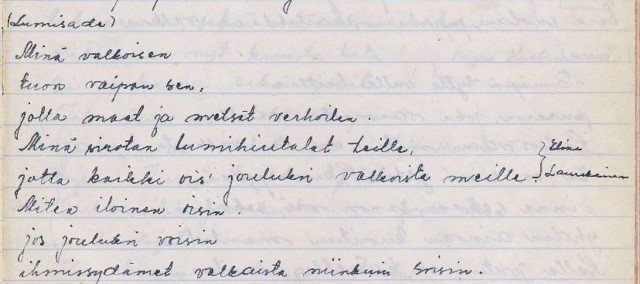 (Lumisade)
Minä valkoisen
tuon vaipan sen,
jolla maat ja metsät verhoilen.
Minä sirotan lumihiutalet teille,
jotta kaikki ois' jouluksi valkoista meille. } Elina
Laurikainen
Miten iloinen oisin.
jos jouluksi voisin
ihmissydämet valkaista niinkuin soisin.